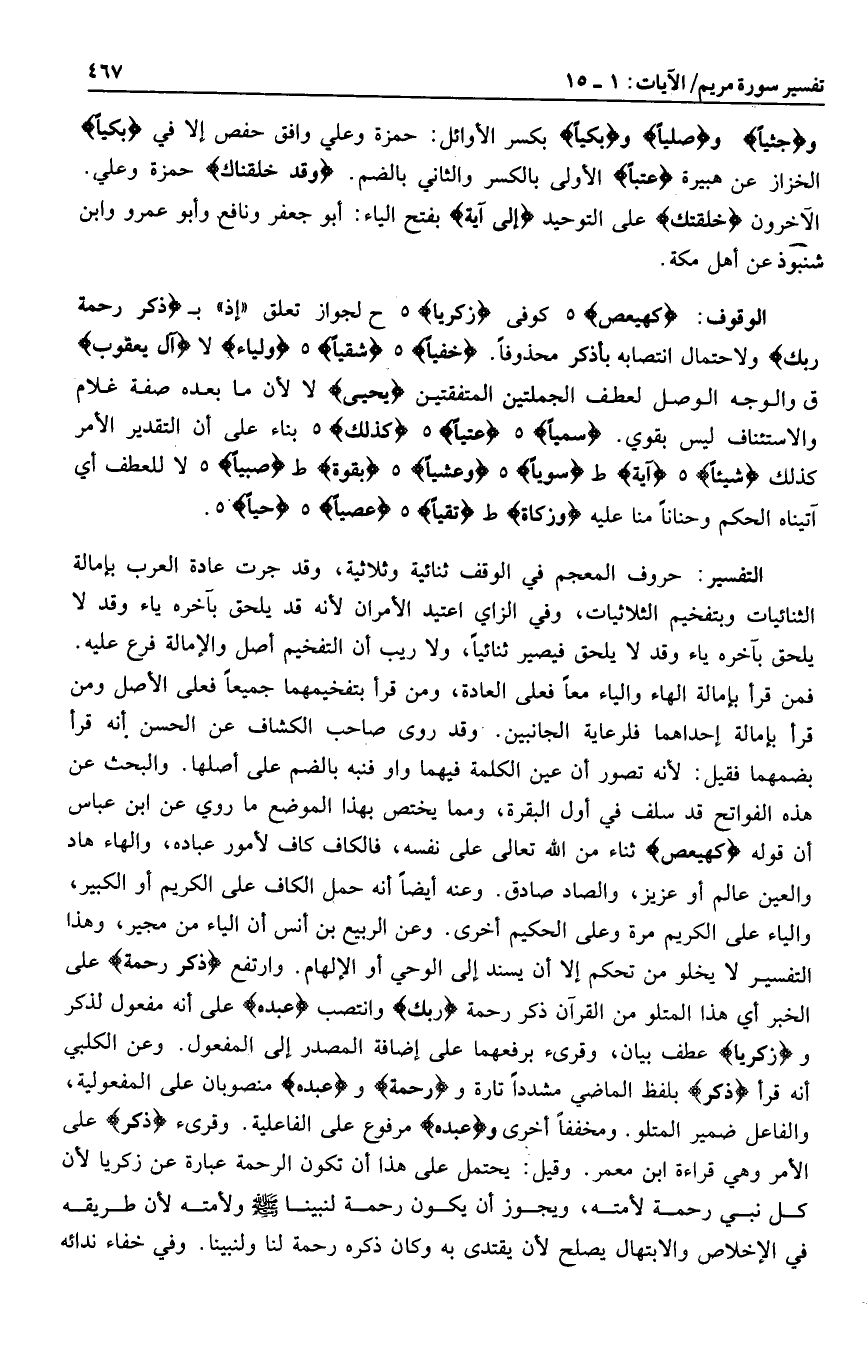 تفسير سورة مريم/ الآيات: ١ - ١٥
٤٦٧
و﴿جثياً﴾ و﴿صلياً﴾ و﴿بكياً﴾ بكسر الأوائل: حمزة وعلي وافق حفص إلا في ﴿بكياً﴾
الخزاز عن هبيرة ﴿عتياً﴾ الأولى بالكسر والثاني بالضم. ﴿وقد خلقناك﴾ حمزة وعلي.
الآخرون ﴿خلقتك﴾ على التوحيد ﴿إلى آية﴾ بفتح الياء: أبو جعفر ونافع وأبو عمرو وابن
شنبوذ عن أهل مكة.
الوقوف: ﴿كهيعص﴾ ٥ كوفى ﴿زكريا﴾ ٥ ح لجواز تعلق «إذ» بـ ﴿ذكر رحمة
ربك﴾ ولاحتمال انتصابه بأذكر محذوفاً. ﴿خفياً﴾ ٥ ﴿شقياً﴾ ٥ ﴿ولياء﴾ لا ﴿آل يعقوب﴾
ق والوجه الوصل لعطف الجملتين المتفقتين ﴿يحيى﴾ لا لأن ما بعده صفة غلام
والاستئناف ليس بقوي. ﴿سمياً﴾ ٥ ﴿عتياً﴾ ٥ ﴿كذلك﴾ ٥ بناء على أن التقدير الأمر
كذلك ﴿شيئاً﴾ ٥ ﴿آية﴾ ط ﴿سوياً﴾ ٥ ﴿وعشياً﴾ ٥ ﴿بقوة﴾ ط ﴿صبياً﴾ ٥ لا للعطف أي
آتيناه الحكم وحناناً منا عليه ﴿وزكاة﴾ ط ﴿تقياً﴾ ٥ ﴿عصياً﴾ ٥ ﴿حياً﴾ ٥.
التفسير: حروف المعجم في الوقف ثنائية وثلاثية، وقد جرت عادة العرب بإمالة
الثنائيات وبتفخيم الثلاثيات، وفي الزاي اعتيد الأمران لأنه قد يلحق بآخره ياء وقد لا
يلحق بآخره ياء وقد لا يلحق فيصير ثنائياً، ولا ريب أن التفخيم أصل والإمالة فرع عليه.
فمن قرأ بإمالة الهاء والياء معاً فعلى العادة، ومن قرأ بتفخيمهما جميعاً فعلى الأصل ومن
قرأ بإمالة إحداهما فلرعاية الجانبين. وقد روى صاحب الكشاف عن الحسن أنه قرأ
بضمهما فقيل: لأنه تصور أن عين الكلمة فيهما واو فنبه بالضم على أصلها. والبحث عن
هذه الفواتح قد سلف في أول البقرة، ومما يختص بهذا الموضع ما روي عن ابن عباس
أن قوله ﴿كهيعص﴾ ثناء من الله تعالى على نفسه، فالكاف كاف لأمور عباده، والهاء هاد
والعين عالم أو عزيز، والصاد صادق. وعنه أيضاً أنه حمل الكاف على الكريم أو الكبير،
والياء على الكريم مرة وعلى الحكيم أخرى. وعن الربيع بن أنس أن الياء من مجير، وهذا
التفسير لا يخلو من تحكم إلا أن يسند إلى الوحي أو الإلهام. وارتفع ﴿ذكر رحمة﴾ على
الخبر أي هذا المتلو من القرآن ذكر رحمة ﴿ربك﴾ وانتصب ﴿عبده﴾ على أنه مفعول لذكر
و ﴿زكريا﴾ عطف بيان، وقرىء برفعهما على إضافة المصدر إلى المفعول. وعن الكلبي
أنه قرأ ﴿ذكر﴾ بلفظ الماضي مشدداً تارة و ﴿رحمة﴾ و ﴿عبده﴾ منصوبان على المفعولية،
والفاعل ضمير المتلو. ومخففاً أخرى و﴿عبده﴾ مرفوع على الفاعلية. وقرىء ﴿ذكر﴾ على
الأمر وهي قراءة ابن معمر. وقيل: يحتمل على هذا أن تكون الرحمة عبارة عن زكريا لأن
كل نبي رحمة لأمته، ويجوز أن يكون رحمة لنبينا ﷺ ولأمته لأن طريقه
في الإخلاص والابتهال يصلح لأن يقتدى به وكان ذكره رحمة لنا ولنبينا. وفي خفاء ندائه